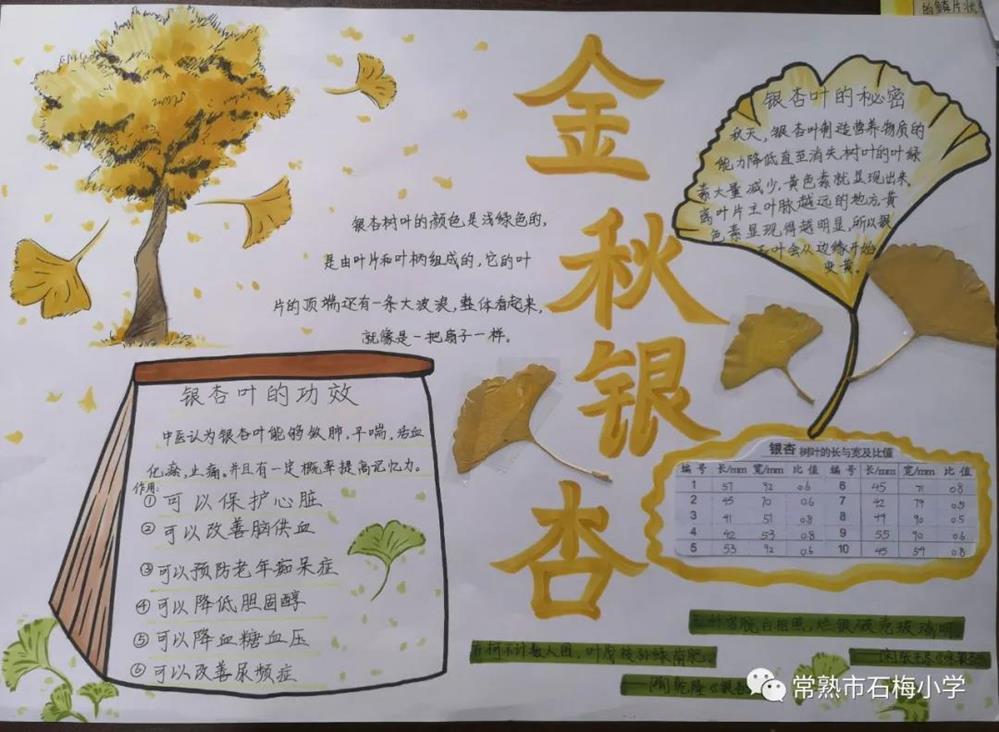 的鳞片状
金秋银杏
银杏树叶的颜色是浅绿色的,
是由叶片和叶柄组成的,它的叶
片的顶端还有一条大波浪,整体看起来,
就像是一把扇子一样。
银杏叶的秘密
秋天,银杏叶制造营养物质的
能力降低直至消失,树叶的叶绿
素大量减少,黄色素就显现出来,
离叶片主叶脉越远的地方,黄
色素显现得越明显,所以银
杏叶会从边缘开始
变黄。
银杏叶的功效
中医认为银杏叶能够敛肺,平喘,活血
化瘀,止痛。并且有一定概率提高记忆力。
作用:
①可以保护心脏
②可以改善脑供血
③可以预防老年痴呆症
④可以降低胆固醇
⑤可以降血糖血压
⑥可以改善尿频症
银杏 树叶的长与宽及比值
编号 长/mm 宽/mm 比值 编号 长/mm 宽/mm 比值
1 57 92 0.6 6 45 71 0.8
2 45 70 0.6 7 42 79
3 41 51 0.8 8 49 90 0.5
4 42 53 0.8 9 55 90 0.6
5 53 92 0.6 10 45 54 0.8
常熟市石梅小学